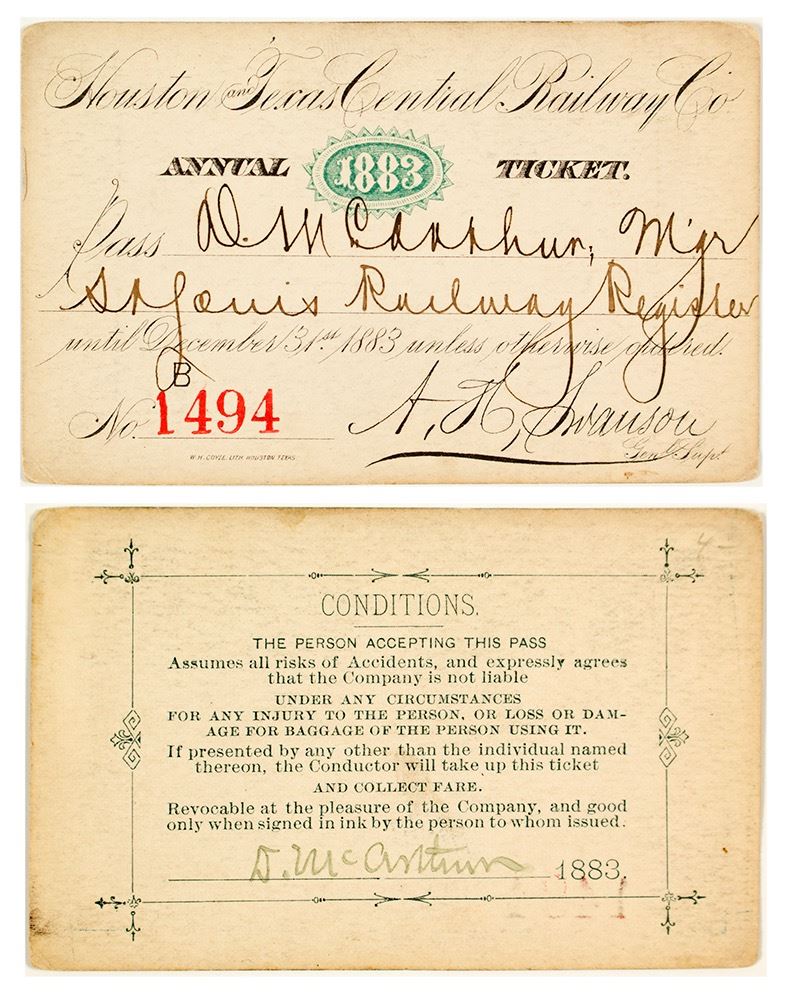 Houston and Texas Central Railway Co.
ANNUAL 1883 TICKET.
Pass D. McArthur, M'gr
St Louis Railway Register
until December 31st 1883 unless otherwise ordered.
B
No. 1494
A. H. Swanson
Gen'l Supt.
W. H. COYLE, LITH. HOUSTON, TEXAS.
4-
CONDITIONS.
THE PERSON ACCEPTING THIS PASS
Assumes all risks of Accidents, and expressly agrees
that the Company is not liable
UNDER ANY CIRCUMSTANCES
FOR ANY INJURY TO THE PERSON, OR LOSS OR DAM-
AGE FOR BAGGAGE OF THE PERSON USING IT.
If presented by any other than the individual named
thereon, the Conductor will take up this ticket
AND COLLECT FARE.
Revocable at the pleasure of the Company, and good
only when signed in ink by the person to whom issued.
D. McArthur 1883.